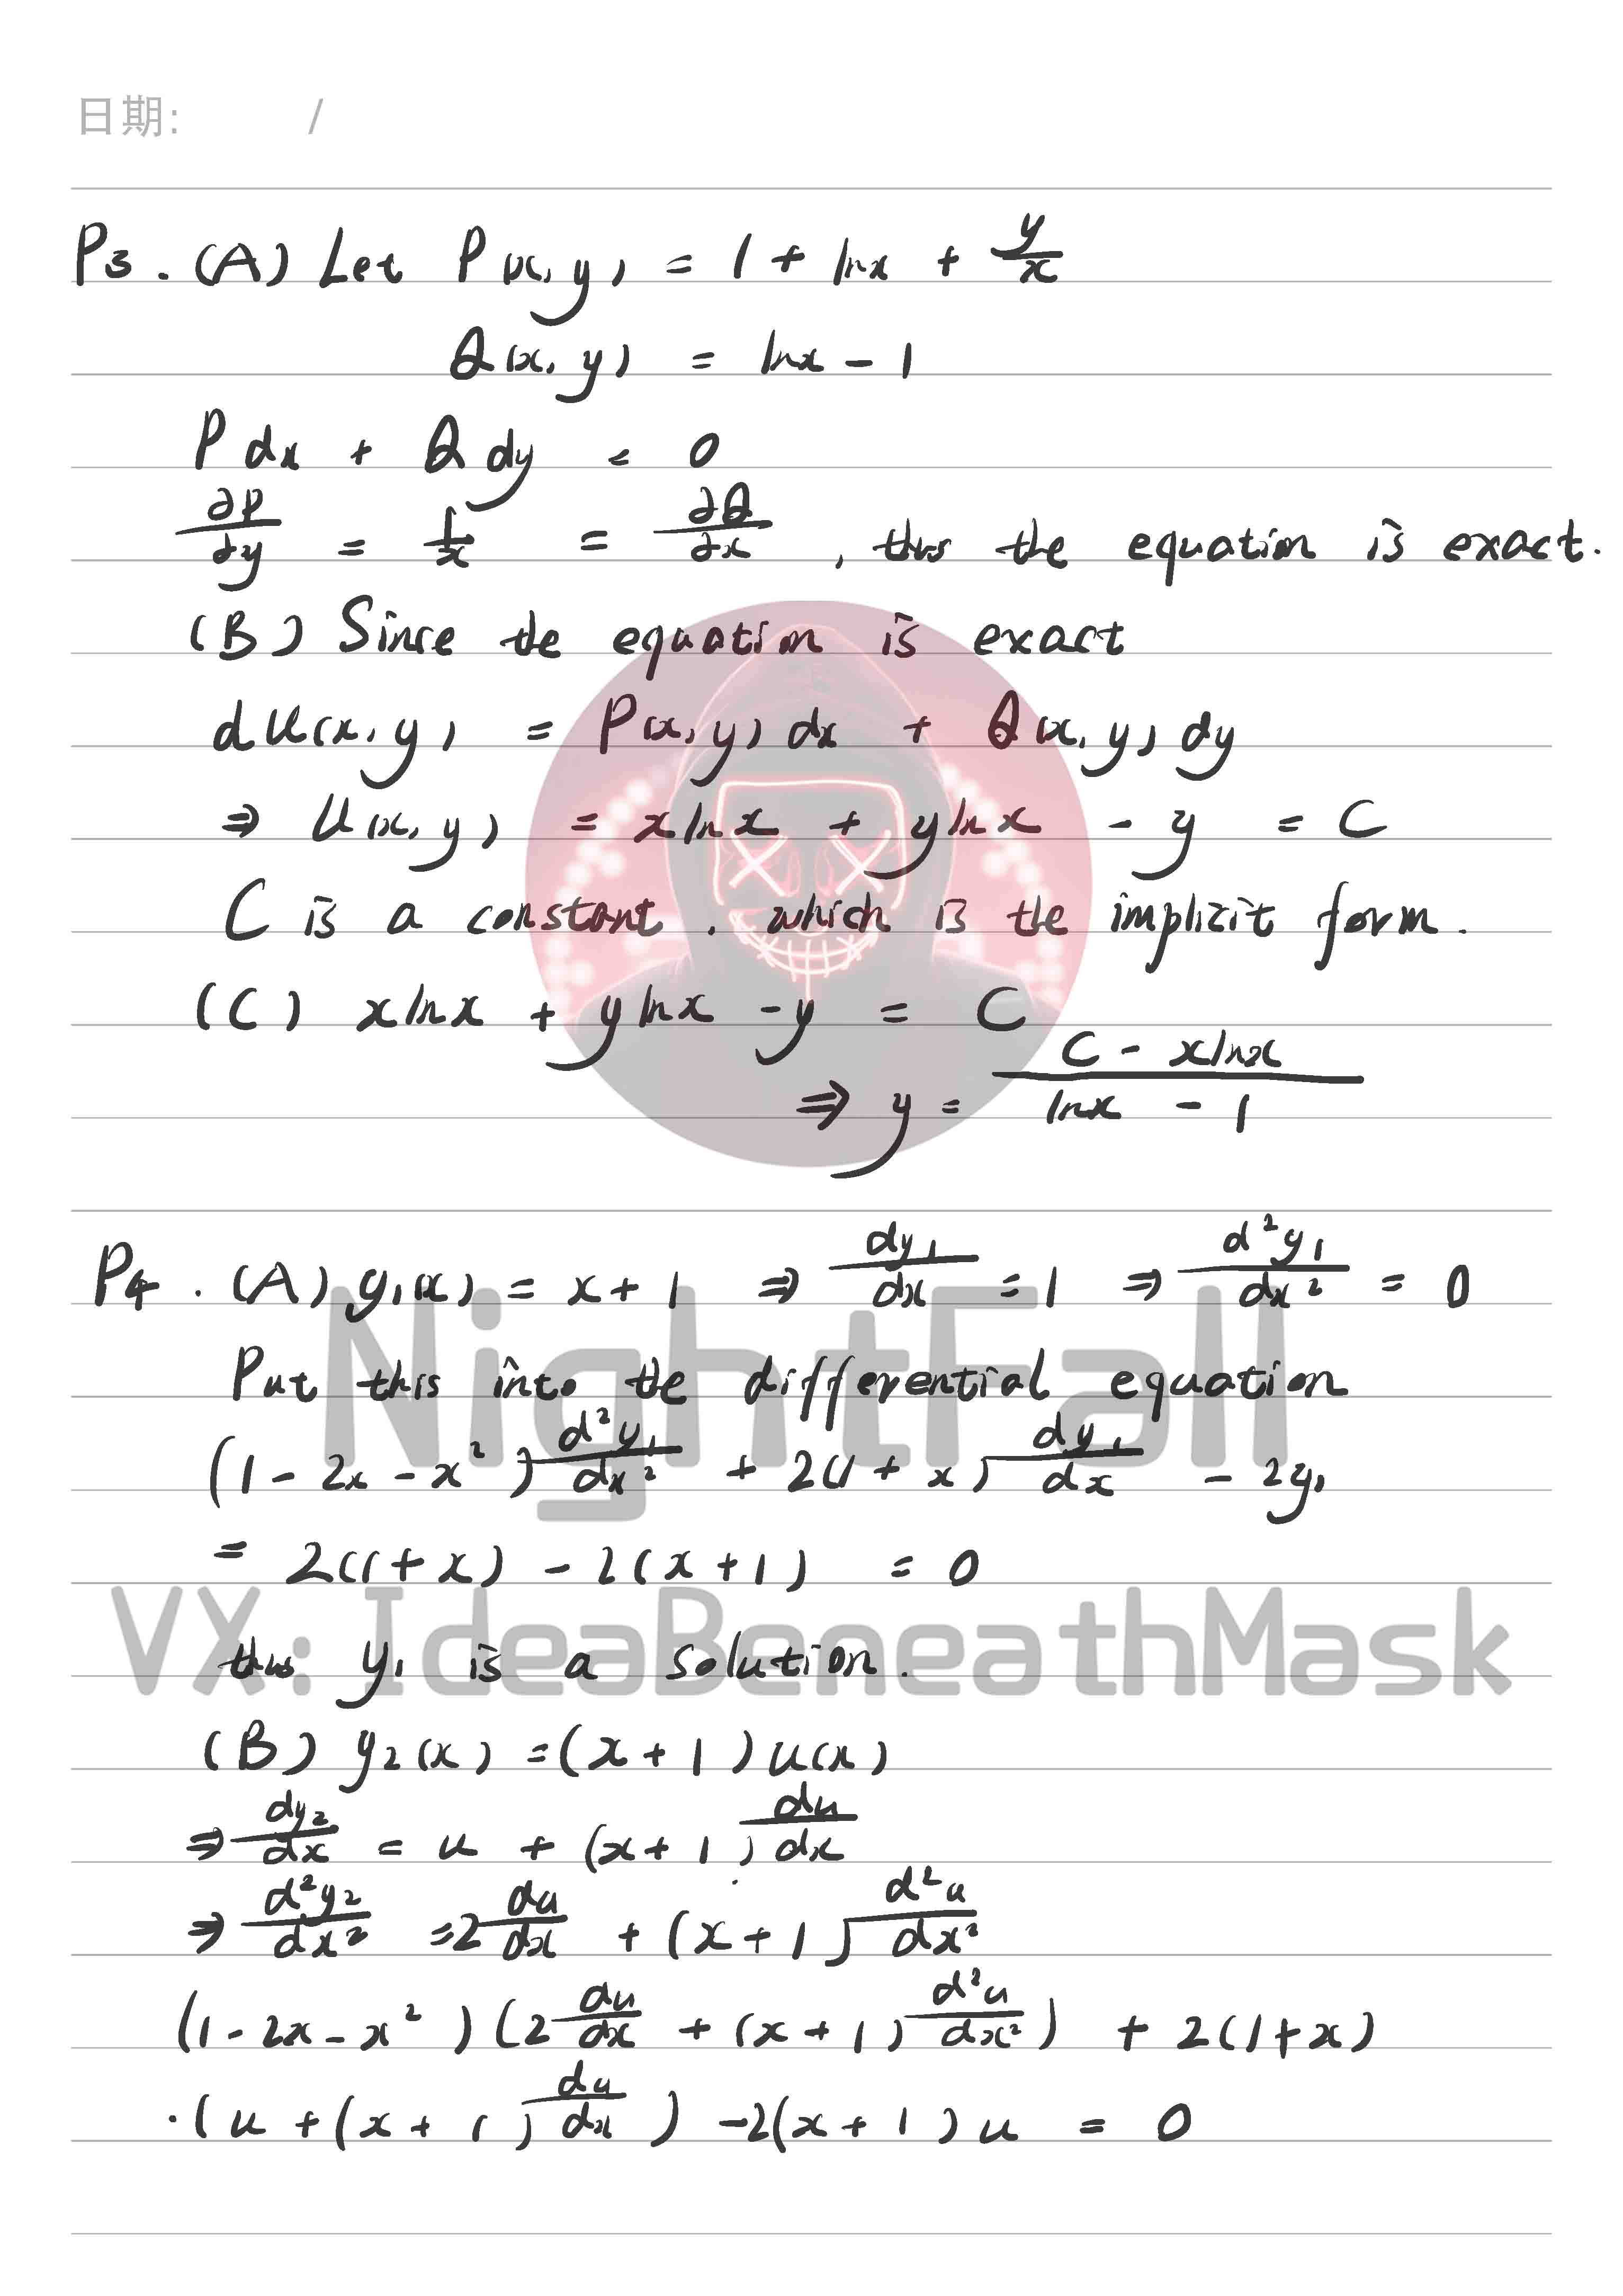 日期: /
P3. (A) Let P(x,y) = 1 + lnx + y/x
Q(x,y) = lnx - 1
P dx + Q dy = 0
∂P/∂y = 1/x = ∂Q/∂x , thus the equation is exact.
(B) Since the equation is exact
du(x,y) = P(x,y) dx + Q(x,y) dy
⇒ u(x,y) = xlnx + ylnx - y = C
C is a constant. which is the implicit form.
(C) xlnx + ylnx - y = C
⇒ y = (C - xlnx)/(lnx - 1)
P4. (A) y₁(x) = x + 1 ⇒ dy₁/dx = 1 ⇒ d²y₁/dx² = 0
NightFall
Put this into the differential equation
(1 - 2x - x²) d²y₁/dx² + 2(1 + x) dy₁/dx - 2y₁
= 2(1 + x) - 2(x + 1) = 0
VX: IdeaBeneathMask
thus y₁ is a solution.
(B) y₂(x) = (x + 1) u(x)
⇒ dy₂/dx = u + (x + 1) du/dx
⇒ d²y₂/dx² = 2 du/dx + (x + 1) d²u/dx²
(1 - 2x - x²)(2 du/dx + (x + 1) d²u/dx²) + 2(1 + x)
·(u + (x + 1) du/dx) - 2(x + 1) u = 0